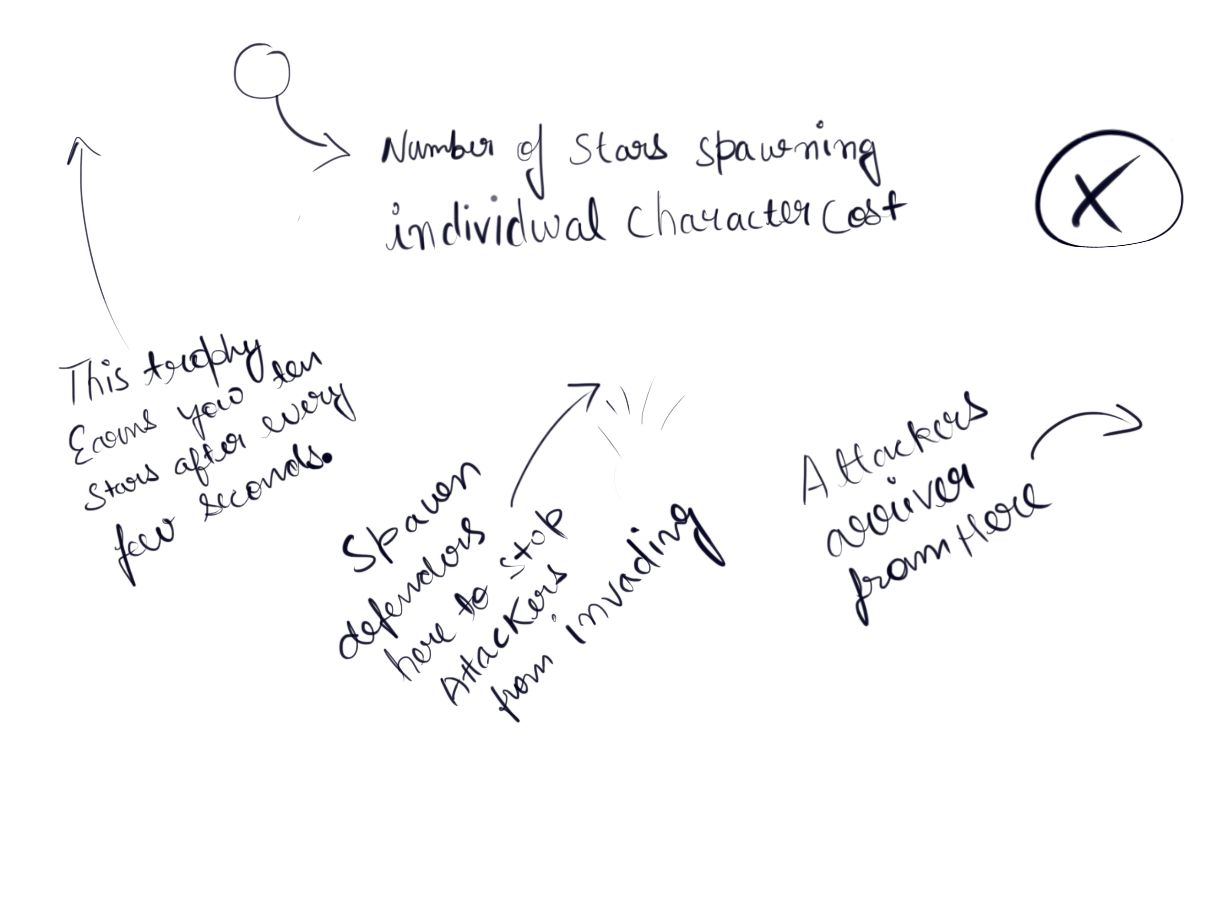 Number of Stars spawning
individual Character Cost
X
This trophy
Earns you ten
Stars after every
few seconds.
Spawn
defendors
here to stop
Attackers
from invading
Attackers
arriver
from Here